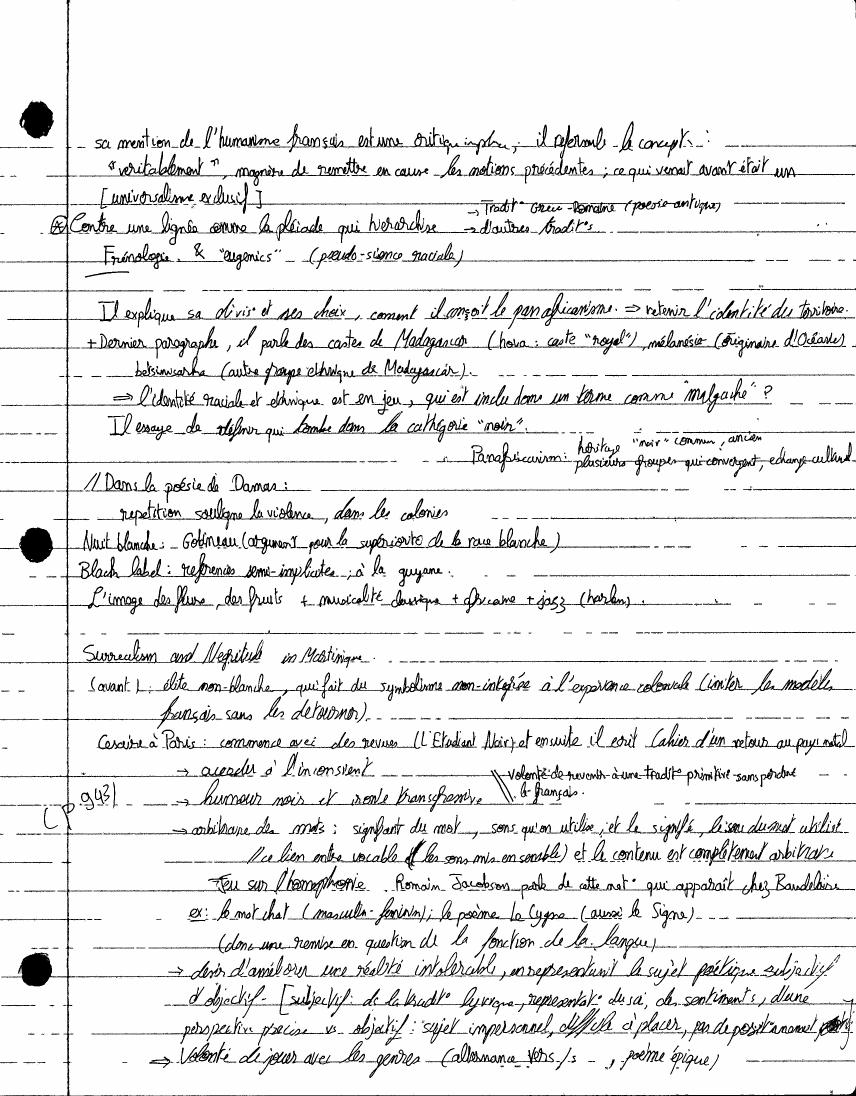 sa mention de l'humanisme français est une critique ; il reformule le concept :
"veritablement", manière de remettre en cause les notions précédentes ; ce qui venait avant était un
[universalisme exclusif]
→ Tradit° Greco-Romaine (poesie antique)
⊛ Contre une lignée comme la pléiade qui hierarchise → d'autres tradit°s
Frénologie & "eugenics" (pseudo-science raciale)
Il explique sa divis° et ses choix, coment il conçoit le panafricanisme. ⇒ retenir l'identité des territoire.
+ Dernier paragraphe, il parle des castes de Madagascar (hova : caste "royal"), mélanésie (originaire d'Océanie)
betsimisaraka (autre groupe ethnique de Madagascar).
⇒ l'identité raciale et ethnique est en jeu, qui est inclu dans un terme comme "malgache" ?
Il essaye de définir qui tombe dans la catégorie "noir".
Panafricanism : héritage "noir" commun, ancien
plusieurs groupes qui convergent, echange culturel
// Dans la poésie de Damas :
repetition souligne la violence, dans les colonies
Nuit blanche : Gobineau (argument pour la supériorité de la race blanche)
Black label : references semi-implicites, à la guyane.
L'image des fleurs, des fruits + musicalité classique + africaine + jazz (harlem).
Surrealism and Negritude in Martinique.
(avant) : élite non-blanche, qui fait du symbolisme non-integrée à l'experience coloniale (imiter les modèles
français sans les detourner)
Cesaire à Paris : commence avec des revues (L'Etudiant Noir) et ensuite il ecrit Cahier d'un retour au pays natal
→ acceder à l'inconscient
\\ volonté de revenir à une tradit° primitive sans perdre
le français.
(p.943) → humour noir et ironie transgressive
→ arbitraire des mots : signifiant du mot, sons qu'on utilise, et le signifié, le sens du mot utilisé
// ce lien entre vocable (les sons mis ensemble) et le contenu est complètement arbitraire
Jeu sur l'homophonie. Romain Jacobson parle de cette not° qui apparaît chez Baudelaire
ex : le mot chat (masculin-feminin) ; le poème Le Cygne (aussi le Signe)
(donc une remise en question de la fonction de la langue)
→ desir d'améliorer une réalité intolerable, en representant le sujet poétique subjectif
d'objectif - [subjectif : de la tradit° lyrique, representat° du soi, de sentiments, d'une
perspective précise vs objectif : sujet impersonnel, difficile à placer, pas de
⇒ Volonté de jouer avec les genres (alternance vers /s - , poème épique)